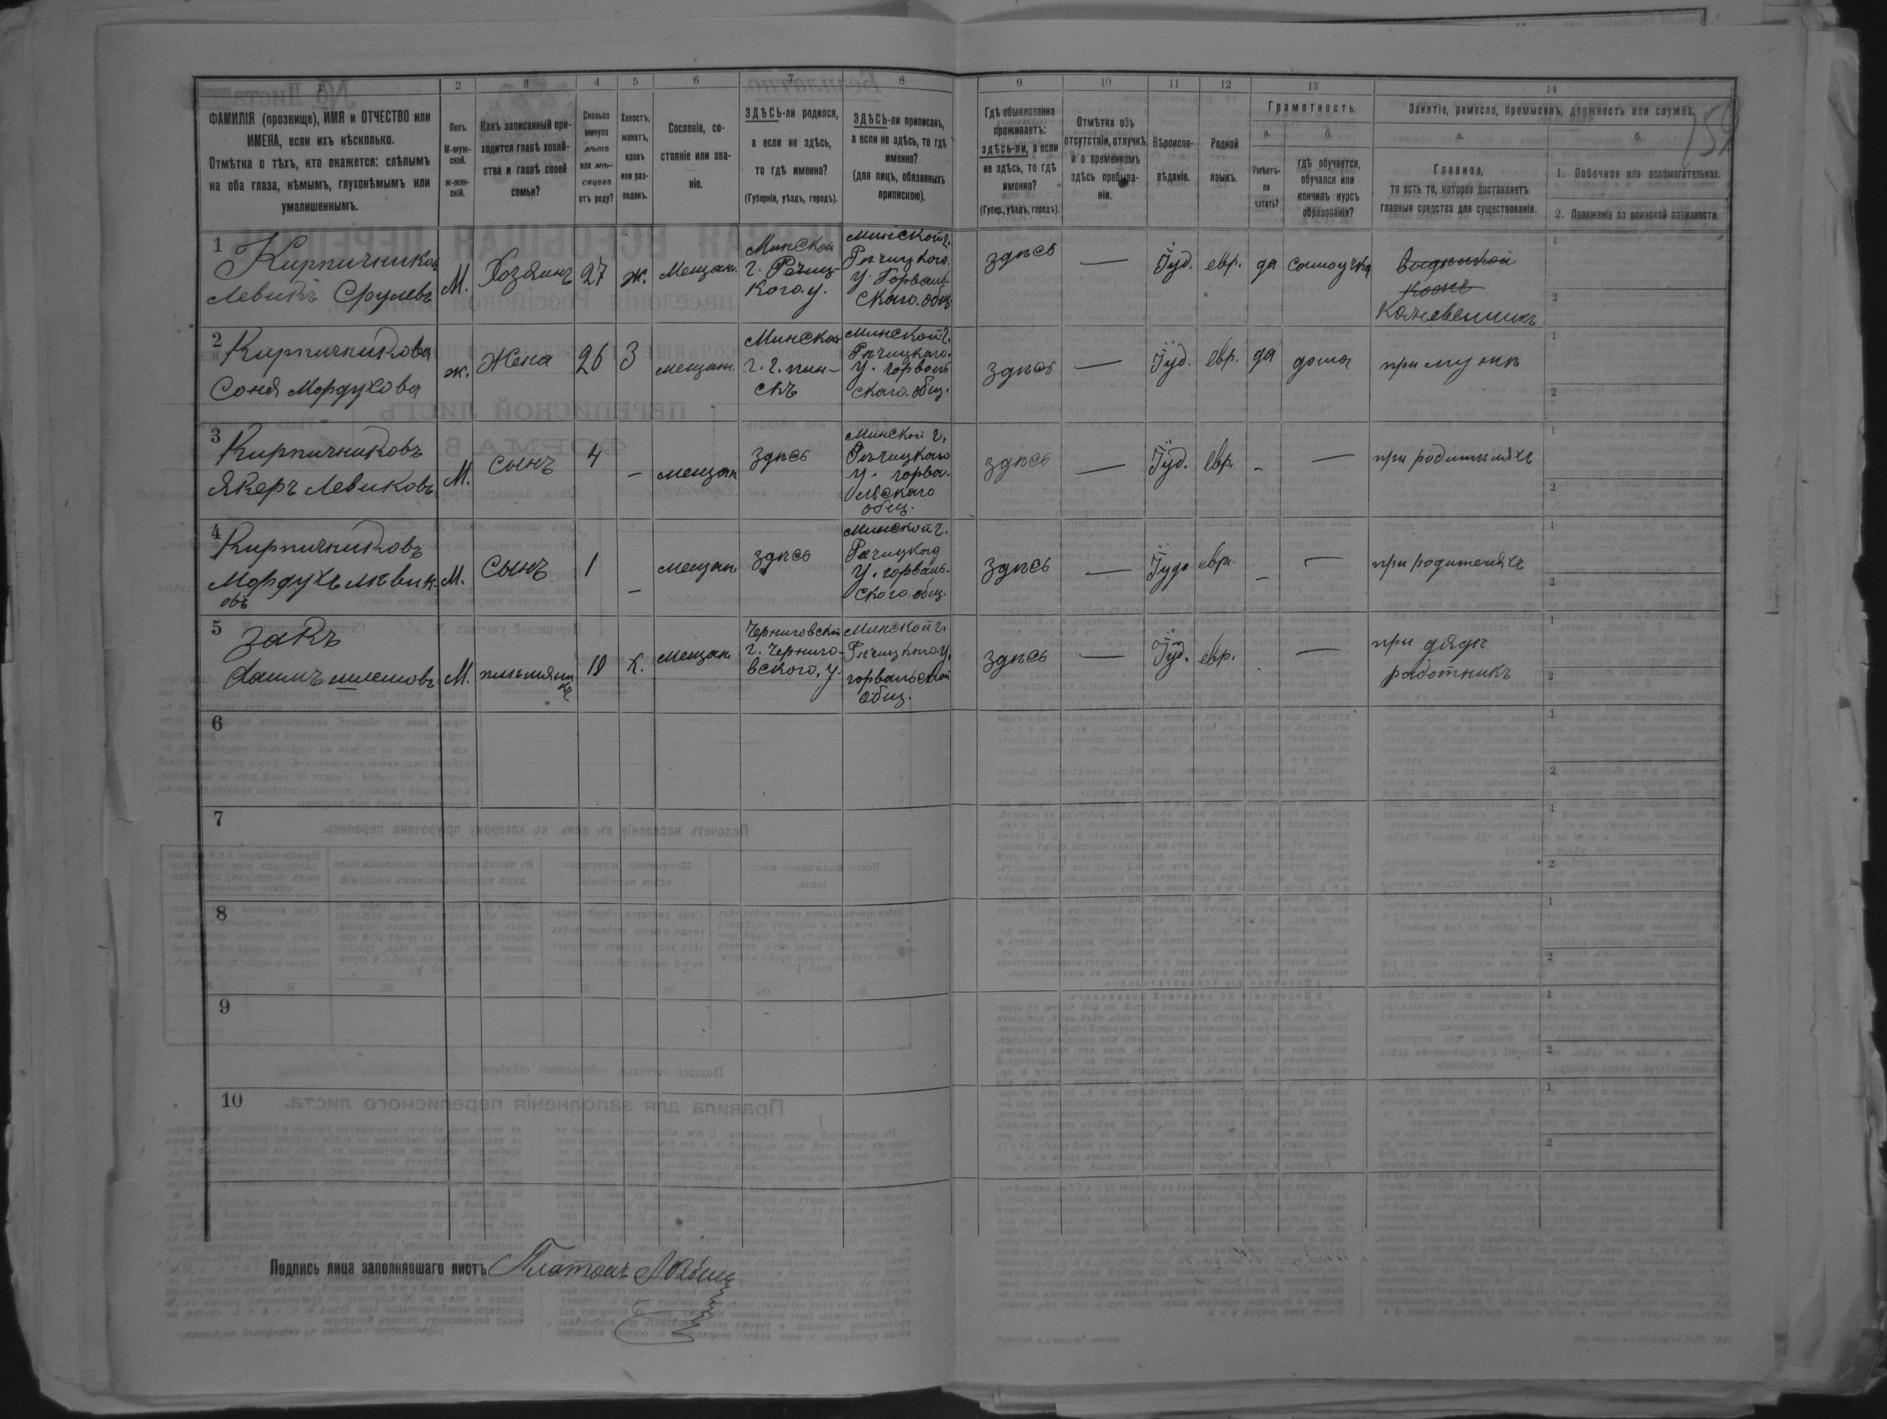 1 2 3 4 5 6 7 8 9 10 11 12 13 14
ФАМИЛІЯ (прозвище), ИМЯ и ОТЧЕСТВО или
ИМЕНА, если ихъ нѣсколько.
Отмѣтка о тѣхъ, кто окажется: слѣпымъ
на оба глаза, нѣмымъ, глухонѣмымъ или
умалишеннымъ.
Полъ.
М-муж-
ской.
ж-жен-
скій.
Какъ записанный при-
ходится главѣ хозяй-
ства и главѣ своей
семьи?
Сколько
минуло
лѣтъ
или мѣ-
сяцевъ
отъ роду?
Холостъ,
женатъ,
вдовъ
или раз-
веденъ.
Сословіе, со-
стояніе или зва-
ніе.
ЗДѢСЬ-ли родился,
а если не здѣсь,
то гдѣ именно?
(Губернія, уѣздъ, городъ).
ЗДѢСЬ-ли приписанъ,
а если не здѣсь, то гдѣ
именно?
(для лицъ, обязанныхъ
припискою).
Гдѣ обыкновенно
проживаетъ:
здѣсь-ли, а если
не здѣсь, то гдѣ
именно?
(Губер., уѣздъ, городъ).
Отмѣтка объ
отсутствіи, отлучкѣ
и о временномъ
здѣсь пребыва-
ніи.
Вѣроиспо-
вѣданіе.
Родной
языкъ.
Грамотность.
а.
Умѣетъ-
ли
читать?
б.
гдѣ обучается,
обучался или
кончилъ курсъ
образованія?
Занятіе, ремесло, промыселъ, должность или служба.
а.
Главное,
то есть то, которое доставляетъ
главныя средства для существованія.
б.
1. Побочное или вспомогательное.
2. Положеніе по воинской повинности.
1
Кирпичниковъ
Левикъ Срулевъ
М.
Хозяинъ
27
ж.
Мещан.
Минской
г. Речиц-
кого. у.
Минской г.
Речицкого.
у. Горваль-
ского. общ.
здѣсь
—
Іуд.
евр.
да
самоучка
кожевенникъ
1
2
2
Кирпичникова
Соня Мордухова
ж.
Жена
26
З
мещан.
Минской
г. г. пин-
скъ
Минской г.
Речицкаго.
у. горваль
скаго. общ.
здѣсь
—
Іуд.
евр.
да
дома
при мужѣ
1
2
3
Кирпичниковъ
Якеръ Левиковъ
М.
сынъ
4
–
мещан
здѣсь
Минской г.
Речицкаго
у. горва-
льскаго
общ.
здѣсь
—
Іуд.
евр.
–
—
при родителяхъ
1
2
4
Кирпичниковъ
Мордухъ Левик-
овъ
М.
сынъ
1
–
мещан.
здѣсь
Минской г.
Речицкого
у. горваль-
ского общ.
здѣсь
—
Іуд.
евр.
–
—
при родителяхъ
1
2
5
Закъ
Хаимъ шлемовъ
М.
племянни
къ
10
х.
мещан.
Черниговской
г. Черниго-
вского, у.
Минской г.
Речицкого у.
горвальской
общ.
здѣсь
—
Іуд.
евр.
—
при дядѣ
работникъ
1
2
6
1
2
7
1
2
8
1
2
9
1
2
10
1
2
Подпись лица заполнявшаго листъ Платонъ